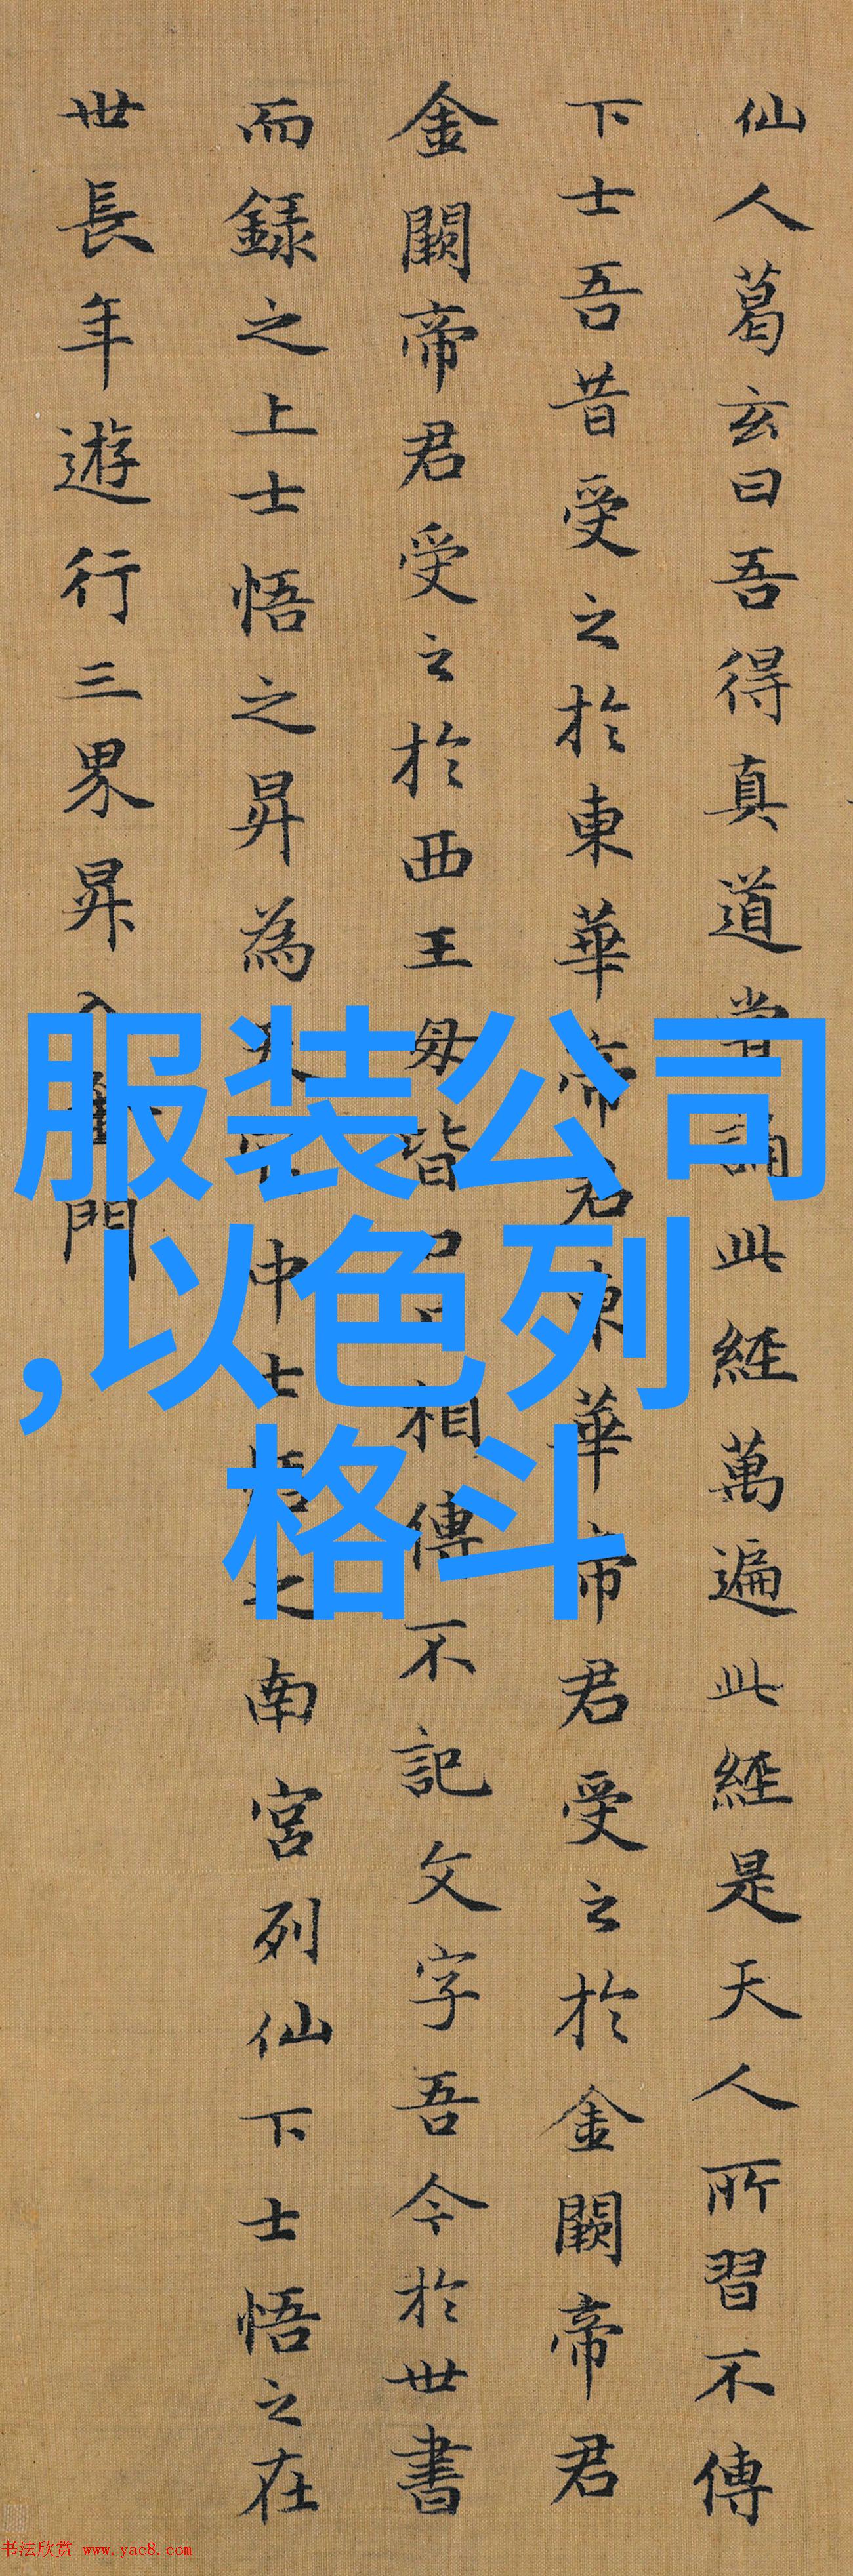 仙人葛玄曰吾得真道常誦此經萬遍此經是天人所習不傳
下士吾昔受之於東華帝君東華帝君受之於金闕帝君
金闕帝君受之於西王母皆口口相傳不記文字吾今於世書
而録之上士悟之昇為天官中士悟之南宮列仙下士悟之在
世長年遊行三界昇入金門
服装公司
,以色列
格斗
书法欣赏 www.yac8.com